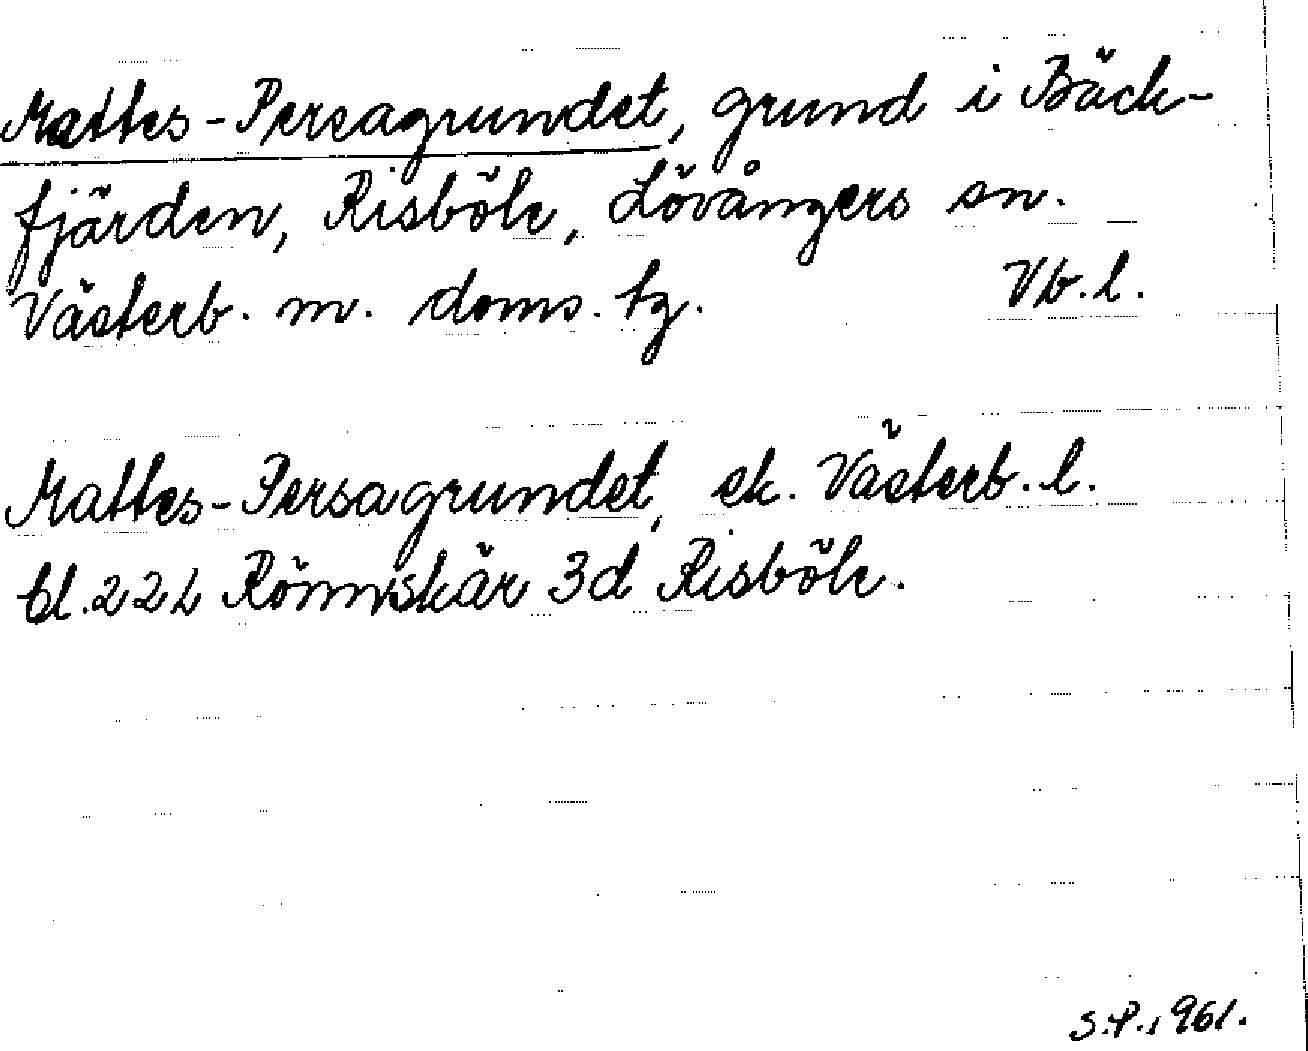 Mattes-Persagrundet, grund i Bäck-
fjärden, Risböle, Lövångers sn.
Västerb. m. doms. tg. Vb. l.
Mattes-Persagrundet, ek. Västerb. l.
bl. 22L Rönnskär 3d Risböle.
S.P. 1961.